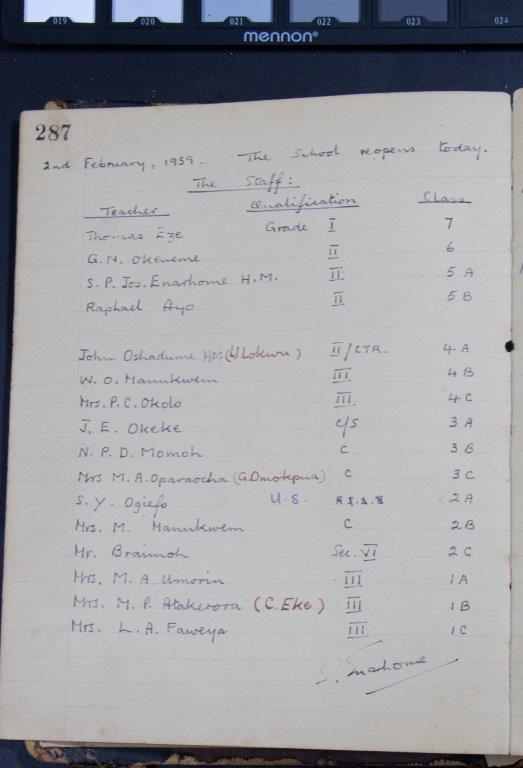 019 020 021 022 023 024
mennon®
287
2nd February, 1959. The School reopens today.
The Staff:
Teacher Qualification Class
Thomas Eze Grade I 7
G.N. Okeneme II 6
S. P. Jos. Enarhome H.M. II 5 A
Raphael Ayo II 5 B
John Oshadume (W Lokwu) II/CTR. 4 A
W. O. Manukwem III 4 B
Mrs. P. C. Okolo III 4 C
J. E. Okeke C/S 3 A
N. P. D. Momoh C 3 B
Mrs M. A. Oparaocha (G. Omokpua) C 3 C
S. Y. Ogiefo U.S. 2 A
Mrs. M. Manukwem C 2 B
Mr. Braimoh Sec. VI 2 C
Mrs. M. A. Umorin III 1 A
Mrs. M. P. Atakerora (C. Eke) III 1 B
Mrs. L. A. Faweya III 1 C
S. Enarhome